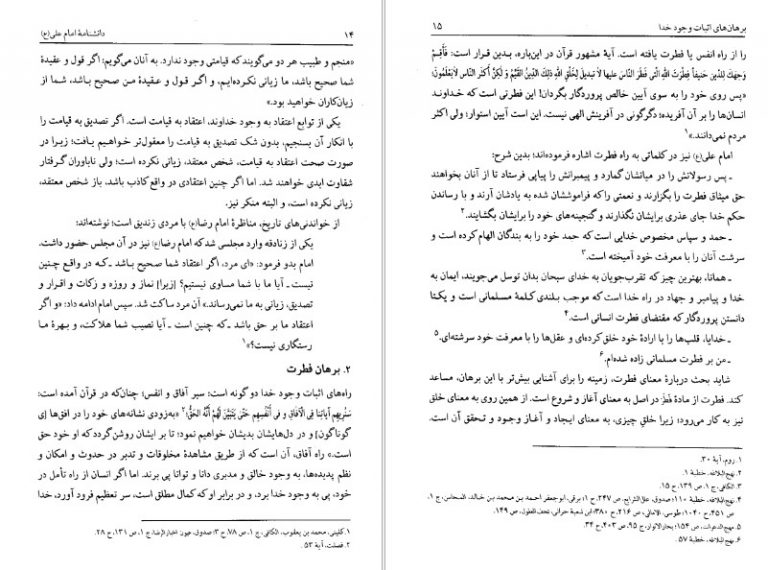 ۱۴ دانشنامهٔ امام علی(ع)
«منجم و طبیب هر دو می‌گویند که قیامتی وجود ندارد. به آنان می‌گویم: اگر قول و عقیدهٔ
شما صحیح باشد، ما زیانی نکرده‌ایم، و اگر قول و عقیدهٔ من صحیح باشد، شما از
زیان‌کاران خواهید بود.»
یکی از توابع اعتقاد به وجود خداوند، اعتقاد به قیامت است. اگر تصدیق به قیامت را
با انکار آن بسنجیم، بدون شک تصدیق به قیامت را معقول‌تر خواهیم یافت؛ زیرا در
صورت صحت اعتقاد به قیامت، شخص معتقد، زیانی نکرده است؛ ولی ناباوران گرفتار
شقاوت ابدی خواهند شد. اما اگر چنین اعتقادی در واقع کاذب باشد، باز شخص معتقد،
زیانی نکرده است، و البته منکر نیز.
از خواندنی‌های تاریخ، مناظرهٔ امام رضا(ع) با مردی زندیق است؛ نوشته‌اند:
یکی از زنادقه وارد مجلسی شد که امام رضا(ع) نیز در آن مجلس حضور داشت.
امام بدو فرمود: «ای مرد، اگر اعتقاد شما صحیح باشد ـ که در واقع چنین
نیست ـ آیا ما با شما مساوی نیستیم؟ [زیرا] نماز و روزه و زکات و اقرار و
تصدیق، زیانی به ما نمی‌رساند.» آن مرد ساکت شد. سپس امام ادامه داد: «و اگر
اعتقاد ما بر حق باشد ـ که چنین است ـ آیا نصیب شما هلاکت، و بهرهٔ ما
رستگاری نیست؟»۱
۲. برهان فطرت
راه‌های اثبات وجود خدا دو گونه است: سیر آفاق و انفس؛ چنان‌که در قرآن آمده است:
سَنُرِیهِم آیاتِنا فِی الآفاقِ و فی أَنفُسِهِم حَتّی یَتَبَیَّنَ لَهُم أَنَّهُ الحَقُّ؛۲ «به‌زودی نشانه‌های خود را در افق‌ها [ی
گوناگون] و در دل‌هایشان بدیشان خواهیم نمود؛ تا بر ایشان روشن گردد که او خود حق
است.» راه آفاق، آن است که از طریق مشاهدهٔ مخلوقات و تدبر در حدوث و امکان و
نظم پدیده‌ها، به وجود خالق و مدبری دانا و توانا پی برند. اما اگر انسان از راه تأمل در
خود، پی به وجود خدا برد، و در برابر او که کمال مطلق است، سر تعظیم فرود آورد، خدا
۱. کلینی، محمد بن یعقوب، الکافی، ج ۱، ص ۷۸، ح ۳؛ صدوق، عیون اخبارالرضا، ج ۱، ص ۱۳۱، ح ۲۸.
۲. فصلت، آیهٔ ۵۳.
برهان‌های اثبات وجود خدا ۱۵
را از راه انفس یا فطرت یافته است. آیهٔ مشهور قرآن در این‌باره، بدین قرار است: فَأَقِم
وَجهَکَ لِلدّینِ حَنیفاً فِطرَتَ اللّهِ الَّتی فَطَرَ النّاسَ عَلَیها لا تَبدیلَ لِخَلقِ اللّهِ ذلِکَ الدّینُ القَیِّمُ وَ لکِنَّ أَکثَرَ النّاسِ لا یَعلَمُونَ؛
«پس روی خود را به سوی آیین خالص پروردگار بگردان! این فطرتی است که خداوند
انسان‌ها را بر آن آفریده؛ دگرگونی در آفرینش الهی نیست. این است آیین استوار؛ ولی اکثر
مردم نمی‌دانند.»۱
امام علی(ع) نیز در کلماتی به راه فطرت اشاره فرموده‌اند؛ بدین شرح:
ـ پس رسولانش را در میانشان گمارد و پیمبرانش را پیاپی فرستاد تا از آنان بخواهند
حق میثاق فطرت را بگزارند و نعمتی را که فراموششان شده به یادشان آرند و با رساندن
حکم خدا جای عذری برایشان نگذارند و گنجینه‌های خود را برایشان بگشایند.۲
ـ حمد و سپاس مخصوص خدایی است که حمد خود را به بندگان الهام کرده است و
سرشت آنان را با معرفت خود آمیخته است.۳
ـ همانا، بهترین چیز که تقرب‌جویان به خدای سبحان بدان توسل می‌جویند، ایمان به
خدا و پیامبر و جهاد در راه خدا است که موجب بلندی کلمهٔ مسلمانی است و یکتا
دانستن پروردگار که مقتضای فطرت انسانی است.۴
ـ خدایا، قلب‌ها را با ارادهٔ خود خلق کرده‌ای و عقل‌ها را با معرفت خود سرشته‌ای.۵
ـ من بر فطرت مسلمانی زاده شده‌ام.۶
شاید بحث دربارهٔ معنای فطرت، زمینه را برای آشنایی بیش‌تر با این برهان، مساعد
کند. فطرت از مادهٔ فَطَرَ در اصل به معنای آغاز و شروع است. از همین روی به معنای خلق
نیز به کار می‌رود؛ زیرا خلق چیزی، به معنای ایجاد و آغاز وجود و تحقق آن است.
۱. روم، آیهٔ ۳۰.
۲. نهج‌البلاغه، خطبهٔ ۱.
۳. الکافی، ج ۱، ص ۱۳۹، ح ۱۵.
۴. نهج‌البلاغه، خطبهٔ ۱۱۰؛ صدوق، علل‌الشرایع، ص ۲۴۷، ح ۱؛ برقی، ابوجعفر احمد بن محمد بن خالد، المحاسن، ج ۱،
ص ۴۵۱، ح ۱۰۴۰؛ طوسی، الامالی، ص ۲۱۶، ح ۳۸۰؛ ابن شعبهٔ حرانی، تحف‌العقول، ص ۱۴۹.
۵. مهج‌الدعوات، ص ۱۵۴؛ بحارالانوار، ج ۹۵، ص ۴۰۳، ح ۳۴.
۶. نهج‌البلاغه، خطبهٔ ۵۷.